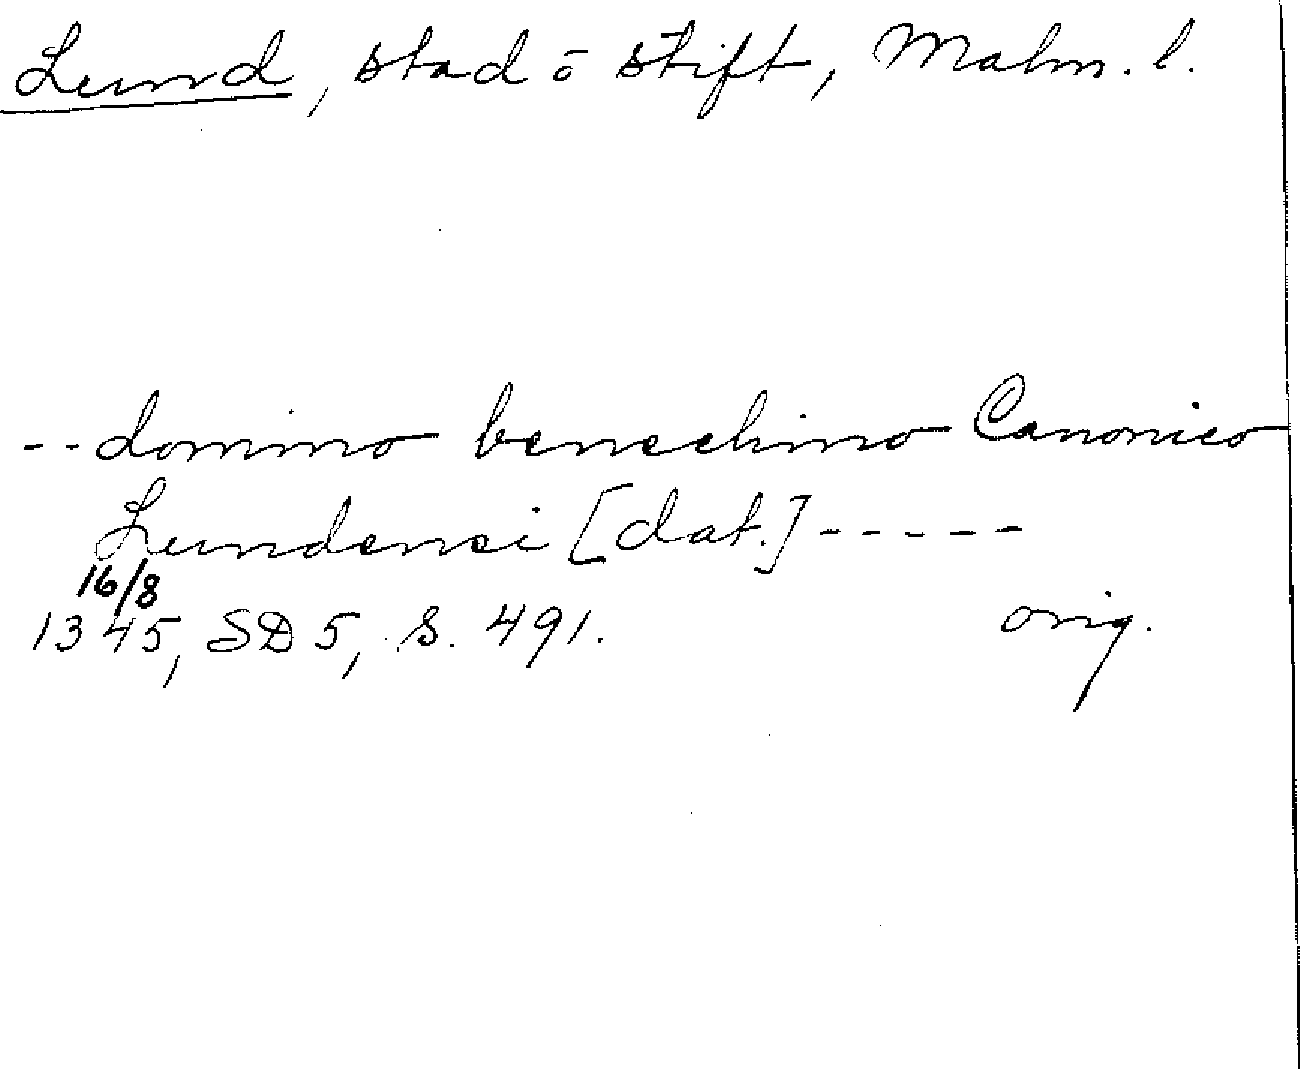 Lund, stad ō stift, Malm. l.
-- domino benechino Canonico
Lundensi [dat.] -----
16/8
1345, SD 5, s. 491. orig.